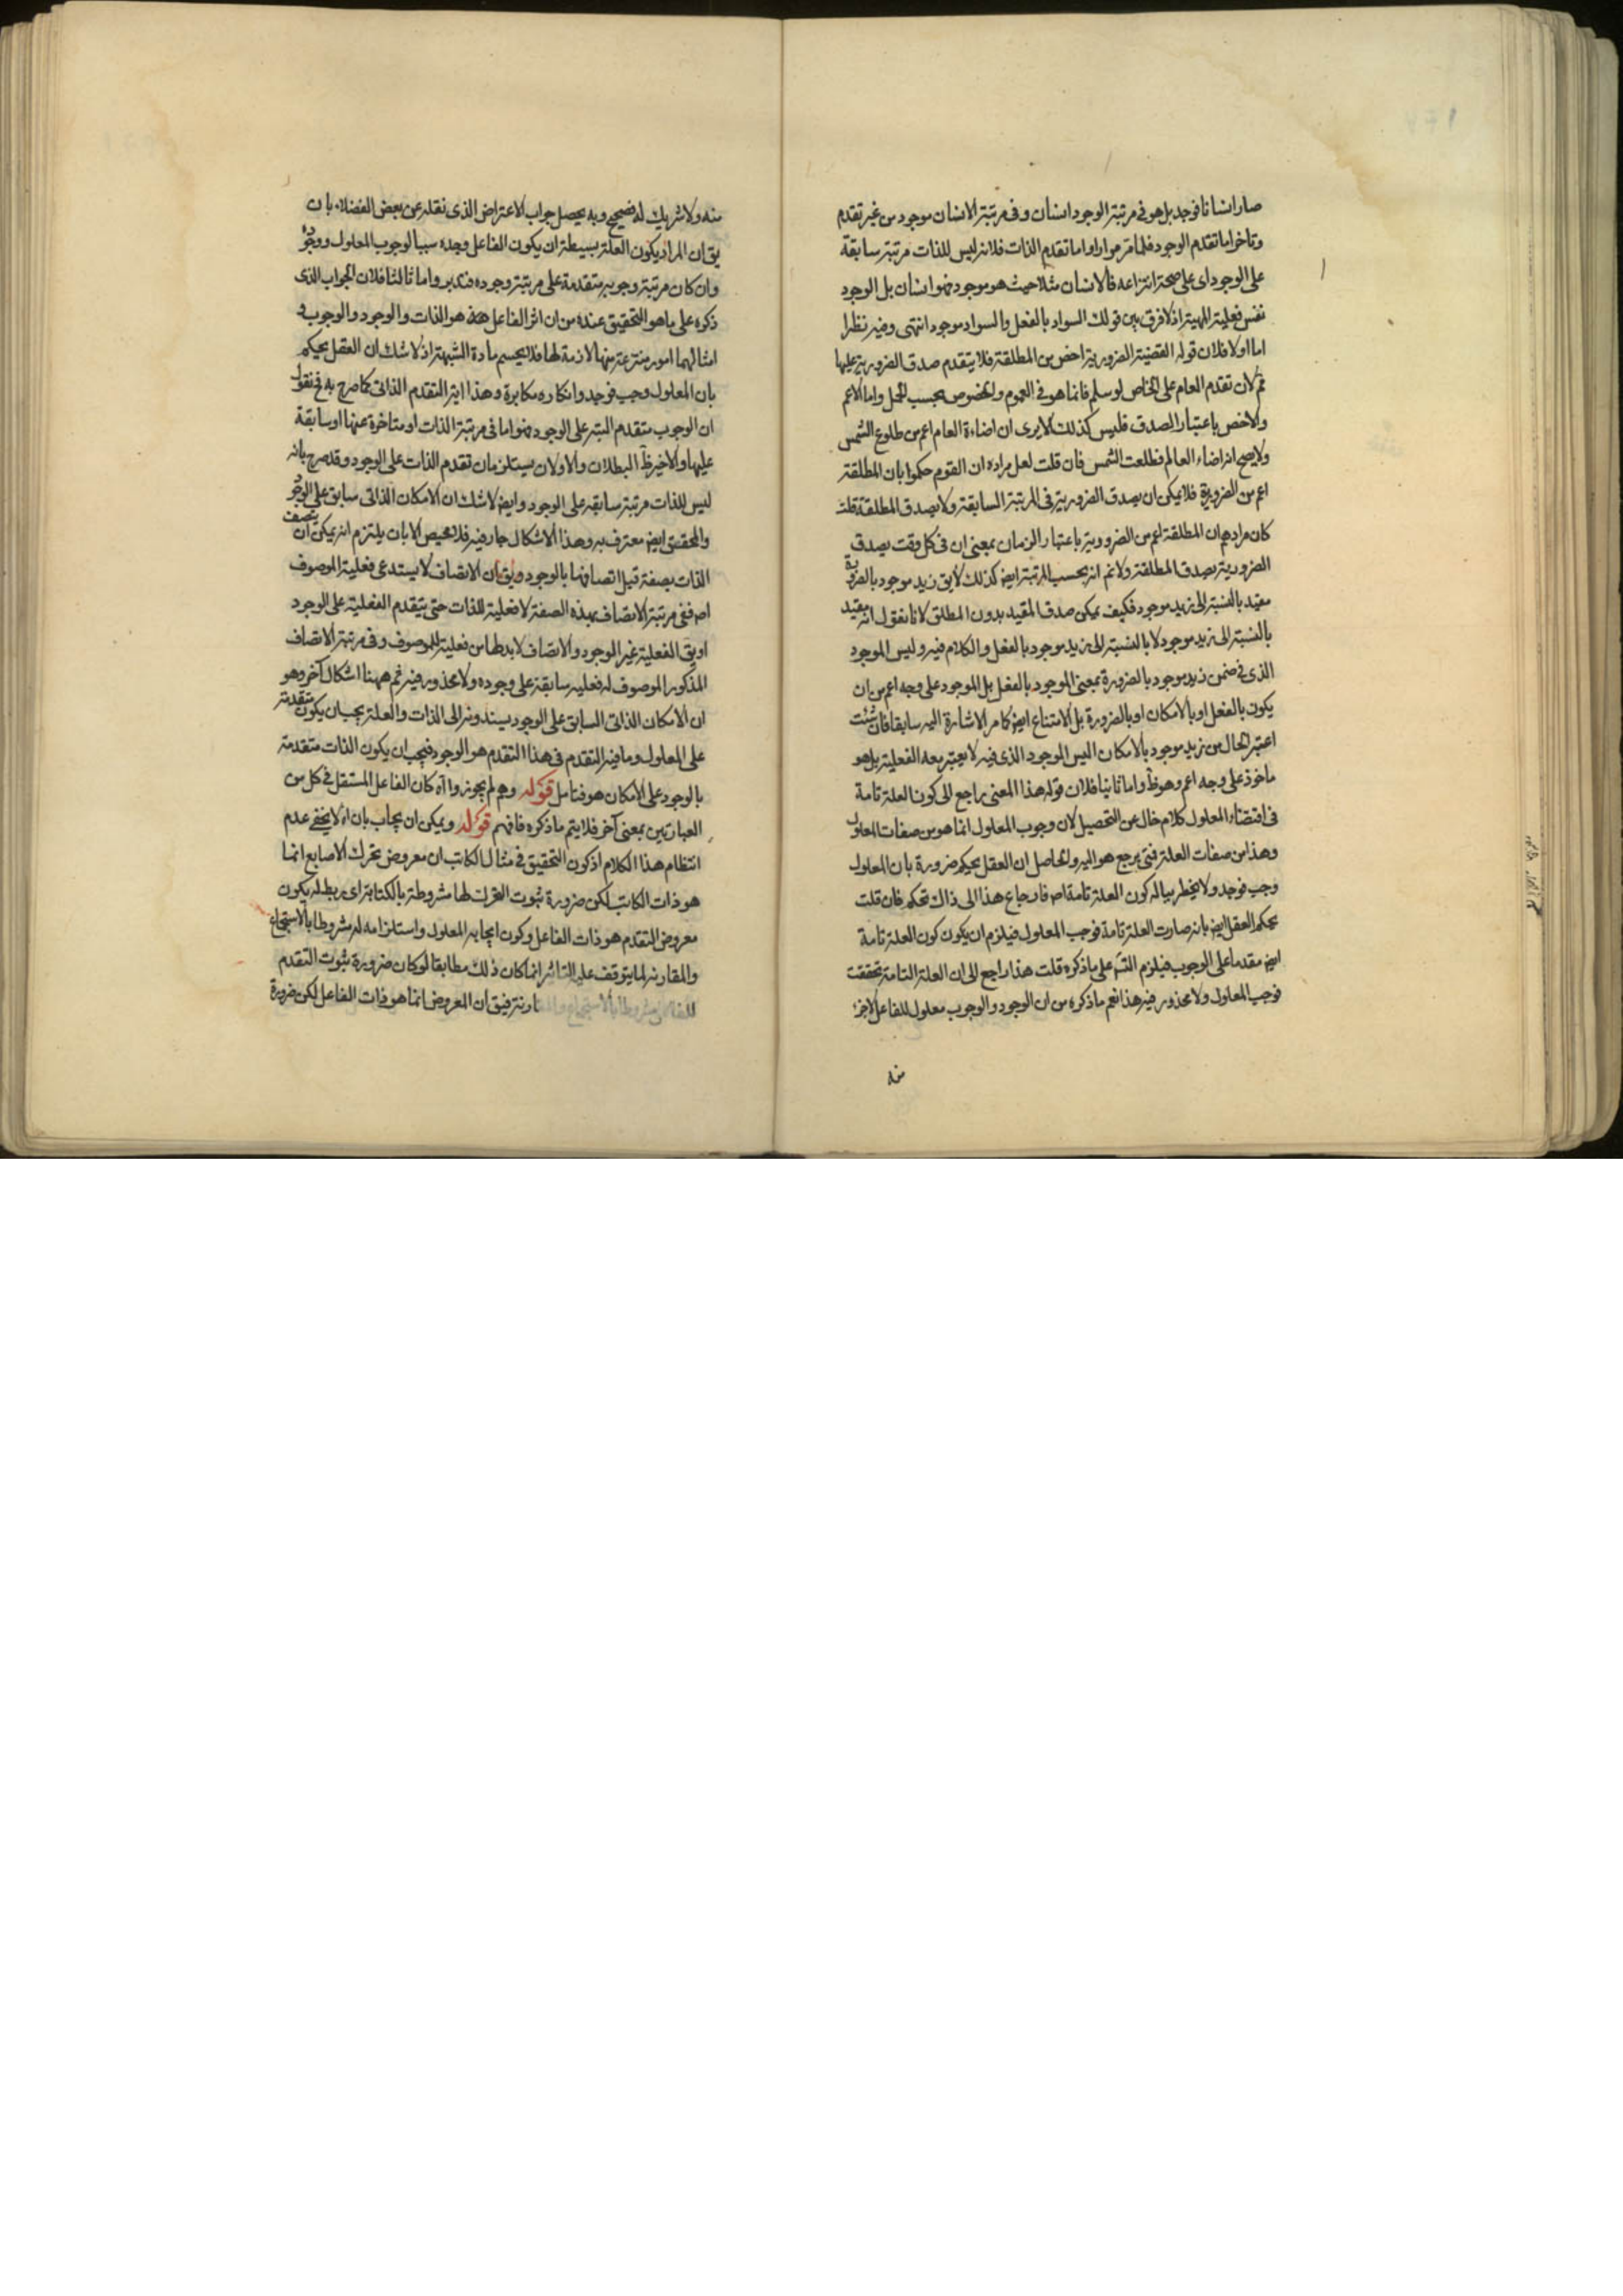 صار انسانا فوجد بل هو فى مرتبة الوجود انسان وفى مرتبة الانسان موجود من غير تقدم
وتاخر اما تقدم الوجود فلما مر مرارا واما تقدم الذات فلانه ليس للذات مرتبة سابقة
على الوجود اى على صحة انتزاعه فالانسان مثلا حيث هو موجود فهو انسان بل الوجود
نفس فعلية المهية اذ لا فرق بين قولك السواد بالفعل والسواد موجود انتهى وفيه نظر ا
اما اولا فلان قوله القضية الضرورية اخص من المطلقة فلا يتقدم صدق الضرورية عليها
مم لان تقدم العام على الخاص لو سلم فانما هو فى العموم والخصوص بحسب الحمل واما الاعم
والاخص باعتبار الصدق فليس كذلك الا يرى ان اضاءة العام اعم من طلوع الشمس
ولا يصح انه اضاء العالم فطلعت الشمس فان قلت لعل مراده ان القوم حكموا بان المطلقة
اعم من الضرورية فلا يمكن ان يصدق الضرورية فى المرتبة السابقة ولا يصدق المطلقة قلت
كان مرادهم ان المطلقة اعم من الضرورية باعتبار الزمان بمعنى ان فى كل وقت يصدق
الضرورية يصدق المطلقة ولا نم انه بحسب المرتبة ايض كذلك لا يق زيد موجود بالضرورة
مقيد بالنسبة الى زيد موجود فكيف يمكن صدق المقيد بدون المطلق لانا نقول انه مقيد
بالنسبة الى زيد موجود لا بالنسبة الى زيد موجود بالفعل والكلام فيه وليس الموجود
الذى فى ضمن زيد موجود بالضرورة بمعنى الموجود بالفعل بل الموجود على وجه اعم من ان
يكون بالفعل او بالامكان او بالضرورة بل الامتناع ايض كما مر الاشارة اليه سابقا فان شئت
اعتبر الحال من زيد موجود بالامكان اليس الموجود الذى فيه لا يعتبر معه الفعلية بل هو
ماخوذ على وجه اعم وهو ظ واما ثانيا فلان قوله هذا المعنى راجع الى كون العلة تامة
فى اقتضاء المعلول كلام خال عن التحصيل لان وجوب المعلول انما هو من صفات المعلول
وهذا من صفات العلة فتى يرجع هو اليه والحاصل ان العقل يحكم ضرورة بان المعلول
وجب فوجد ولا يخطر بباله كون العلة تامة اص فارجاع هذا الى ذاك تحكم فان قلت
يحكم العقل ايض بانه صارت العلة تامة فوجب المعلول فيلزم ان يكون كون العلة تامة
ايض مقدما على الوجوب فيلزم التس على ما ذكره قلت هذا راجع الى ان العلة التامة تحققت
فوجب المعلول ولا محذور فيه هذا نعم ما ذكره من ان الوجود والوجوب معلول للفاعل لا جزء
منه
منه ولا شريك له صحيح وبه يحصل جواب الاعتراض الذى نقله عن بعض الفضلاء بان
يق ان المراد بكون العلة بسيطة ان يكون الفاعل وحده سببا لوجوب المعلول ووجوده
وان كان مرتبة وجوبه متقدمة على مرتبة وجوده فتدبر واما ثالثا فلان الجواب الذى
ذكره على ما هو التحقيق عنده من ان اثر الفاعل هو الذات والوجود والوجوب و
امثالهما امور منتزعة منها لازمة لها فلا يحسم مادة الشبهة اذ لا شك ان العقل يحكم
بان المعلول وجب فوجد وانكاره مكابرة وهذا اية التقدم الذاتى كما صرح به فح نقول
ان الوجوب متقدم البتة على الوجود فهو اما فى مرتبة الذات او متاخرة عنها او سابقة
عليها والاخير ظ البطلان والاولان يستلزمان تقدم الذات على الوجود وقد صرح بانه
ليس للذات مرتبة سابقة على الوجود وايض لا شك ان الامكان الذاتى سابق على الوجود
والمحقق ايض معترف به وهذا الاشكال جار فيه فلا محيص الا بان يلتزم انه يمكن ان يتصف
الذات بصفة قبل اتصافها بالوجود ويق ان الاتصاف لا يستدعى فعلية الموصوف
اص ففى مرتبة الاتصاف بهذه الصفة لا فعلية للذات حتى يتقدم الفعلية على الوجود
او يق الفعلية غير الوجود والاتصاف لا بد لها من فعلية للموصوف وفى مرتبة الاتصاف
المذكور الموصوف له فعلية سابقة على وجوده ولا محذور فيه ثم ههنا اشكال آخر وهو
ان الامكان الذاتى السابق على الوجود يسندونه الى الذات والعلة يجب ان يكون متقدمة
على المعلول وما فيه التقدم فى هذا التقدم هو الوجود فيجب ان يكون الذات متقدمة
بالوجود على الامكان هو فتامل قوله وهم لم يجوزوا آه كان الفاعل المستقل فى كل من
العبارتين بمعنى آخر فلا يتم ما ذكره فافهم قوله ويمكن ان يجاب بان اه لا يخفى عدم
انتظام هذا الكلام اذ كون التحقيق فى مثال الكاتب ان معروض تحرك الاصابع انما
هو ذات الكاتب لكن ضرورة ثبوت التحرك لها مشروطة بالكتابة اى ربط له بكون
معروض التقدم هو ذات الفاعل وكون ايجابه المعلول واستلزامه له مشروطا بالاستجماع
والمقارنه لما يتوقف عليه التاثير انما كان ذلك مطابقا لو كان ضرورة ثبوت التقدم
للفاعل مشروطا بالاستجماع والمقارنة فيق ان المعروض انما هو ذات الفاعل لكن ضرورة